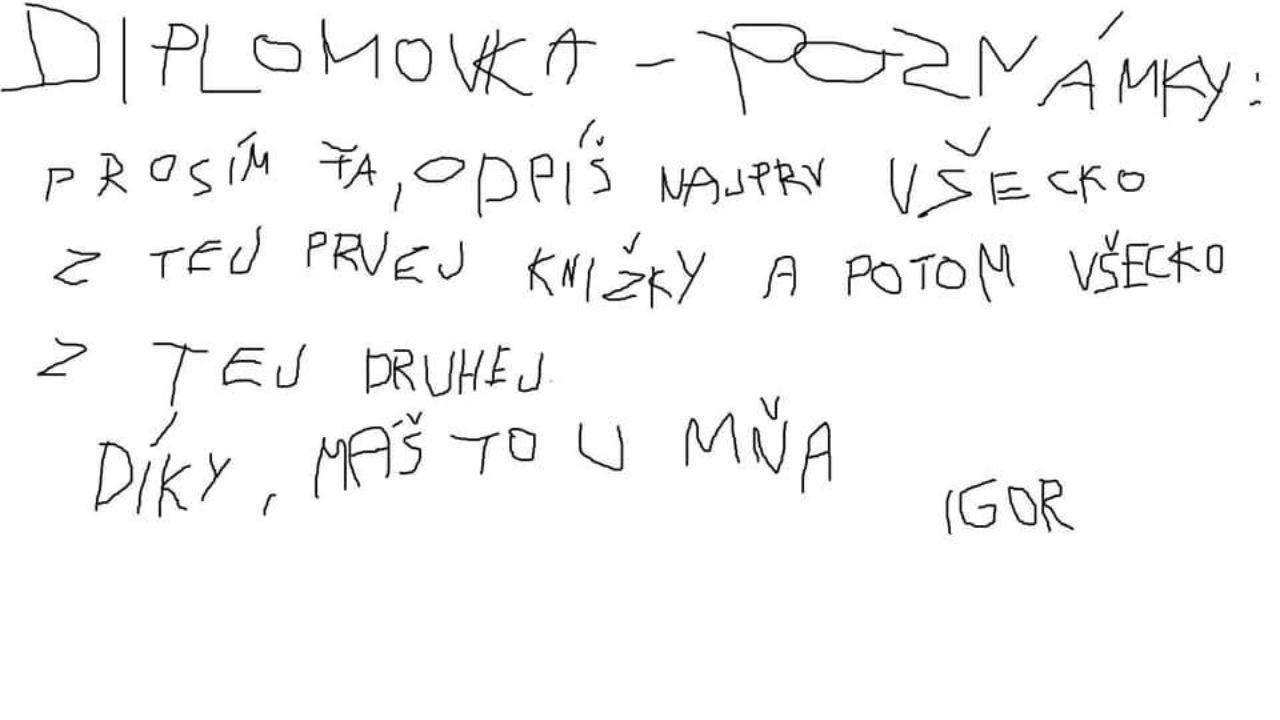 DIPLOMOVKA - POZNÁMKY:
PROSÍM ŤA, ODPÍŠ NAJPRV VŠECKO
Z TEJ PRVEJ KNIŽKY A POTOM VŠECKO
Z TEJ DRUHEJ.
DÍKY, MÁŠ TO U MŇA
IGOR